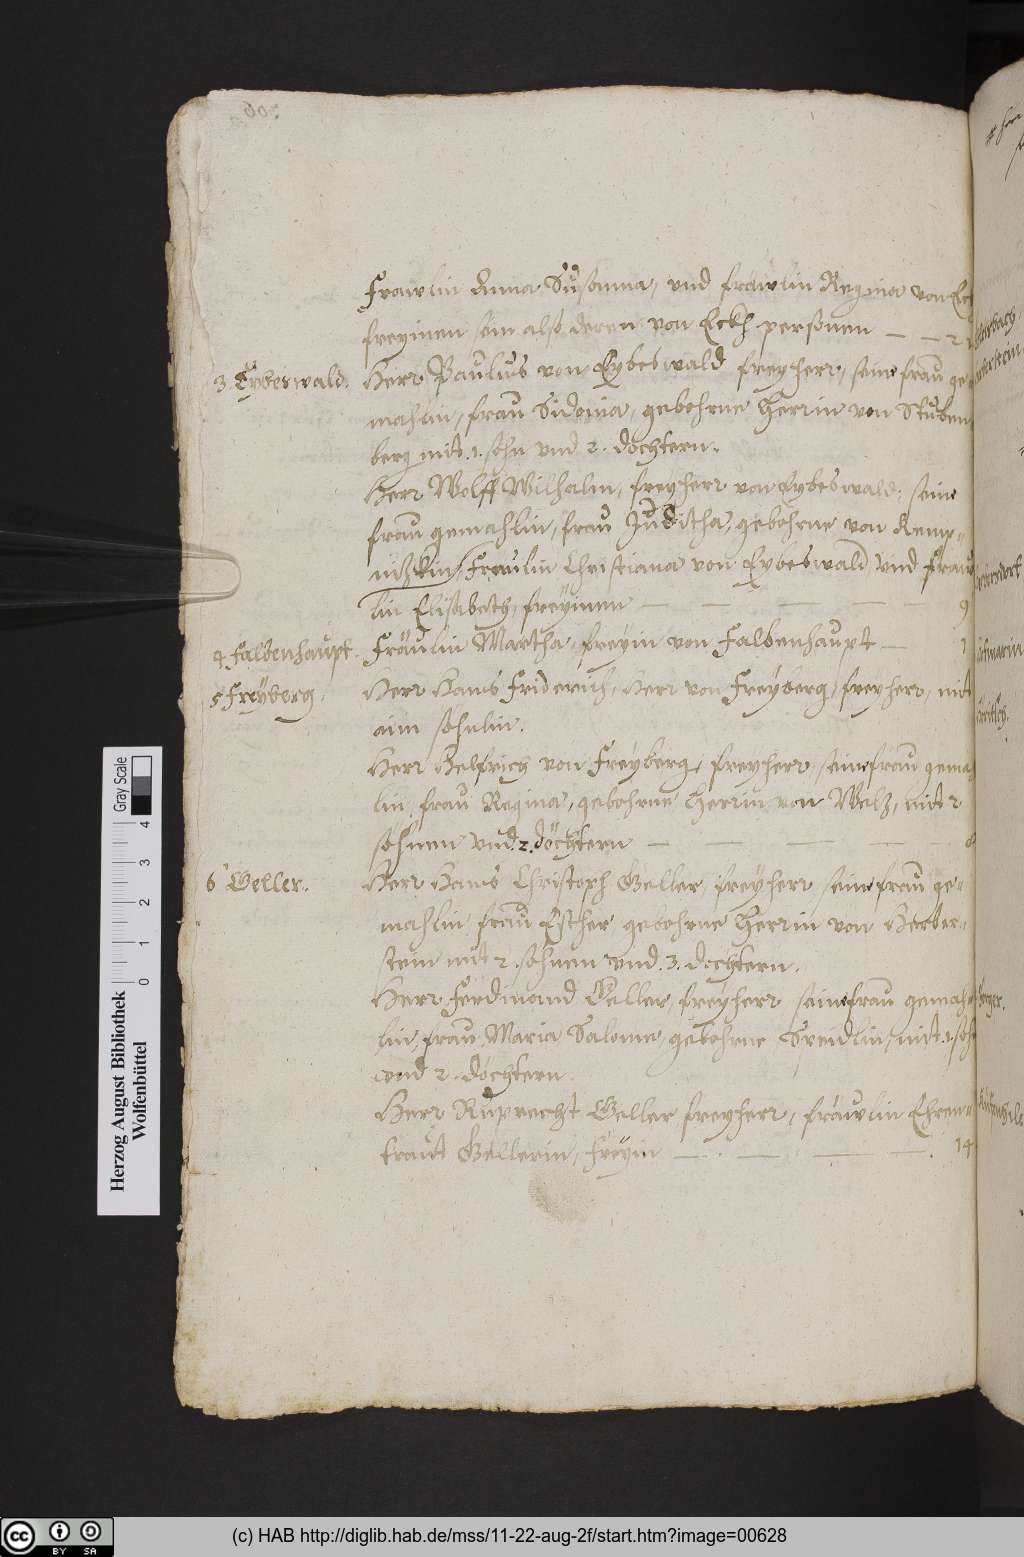 Frawlin Anna Susanna, und frawlin Regina von Eck
freyinen sein also deren von Eckh personen
3 Eybeswald.
Herr Paulus von Eybeswald freyherr, seine frau ge=
mahlin, frau Sidonia, gebohrne Herrin von Stuben
berg mit .1. sohn und 2. dochtern.
Herr Wolff Wilhalm, freyherr von Eybeswald, seine
frau gemahlin, frau Juditha, gebohrne von Kemp=
Fraulin Christiana von Eybeswald und fraw
lin Elisabeth, freyinen — — — — 9
4 Falbenhaupt.
Fräulin Martha freyin von Falbenhaupt — 1
5 Freyberg
Herr Hans Friderich, Herr von Freyberg, freyherr, mit
aim sohnlin.
Herr Helfrich von Freyberg, freyherr, seine frau gema
lin, frau Regina, gebohrne Herrin von Welz, mit 2
sohnen und 2. döchtern — — — — 8
6 Geller.
Herr Hans Christoph Galler, freyherr seine frau ge=
mahlin frau Esther gebohrne Herrin von Herber=
stein mit 2. sohnen und .3. dochtern.
Herr Ferdinand Galler, freyherr seine frau gemah
lin, frau Maria Salome, gebohrne Greidlin, mit .1. sohn
und 2. dochtern
Herr Ruprecht Galler freyherr, fräwlin Ehren=
traut Gallerin, freyin — — — — 14
Herzog August Bibliothek
Wolfenbüttel
Gray Scale
0 1 2 3 4
CC BY SA
(c) HAB http://diglib.hab.de/mss/11-22-aug-2f/start.htm?image=00628